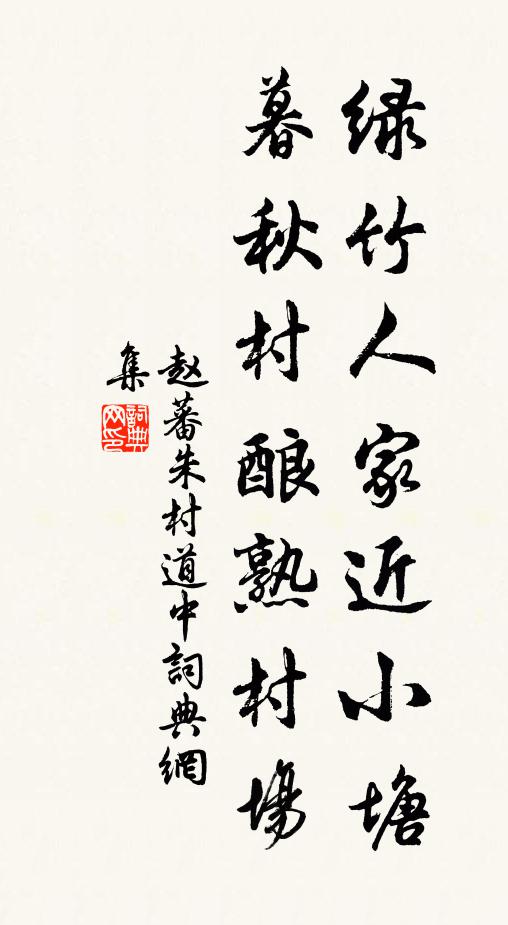 绿竹人家近小塘
暮秋村酿熟村場
赵蕃朱村道中詞典網
集
詞典
网印